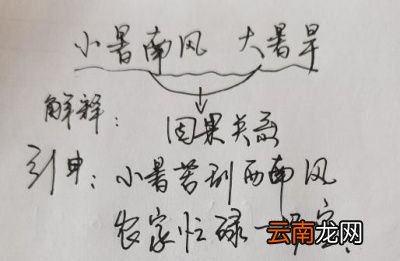 小暑南风 大暑旱
解释：
因果关系
引申：小暑若刮西南风
农家忙碌一场空
云南龙网